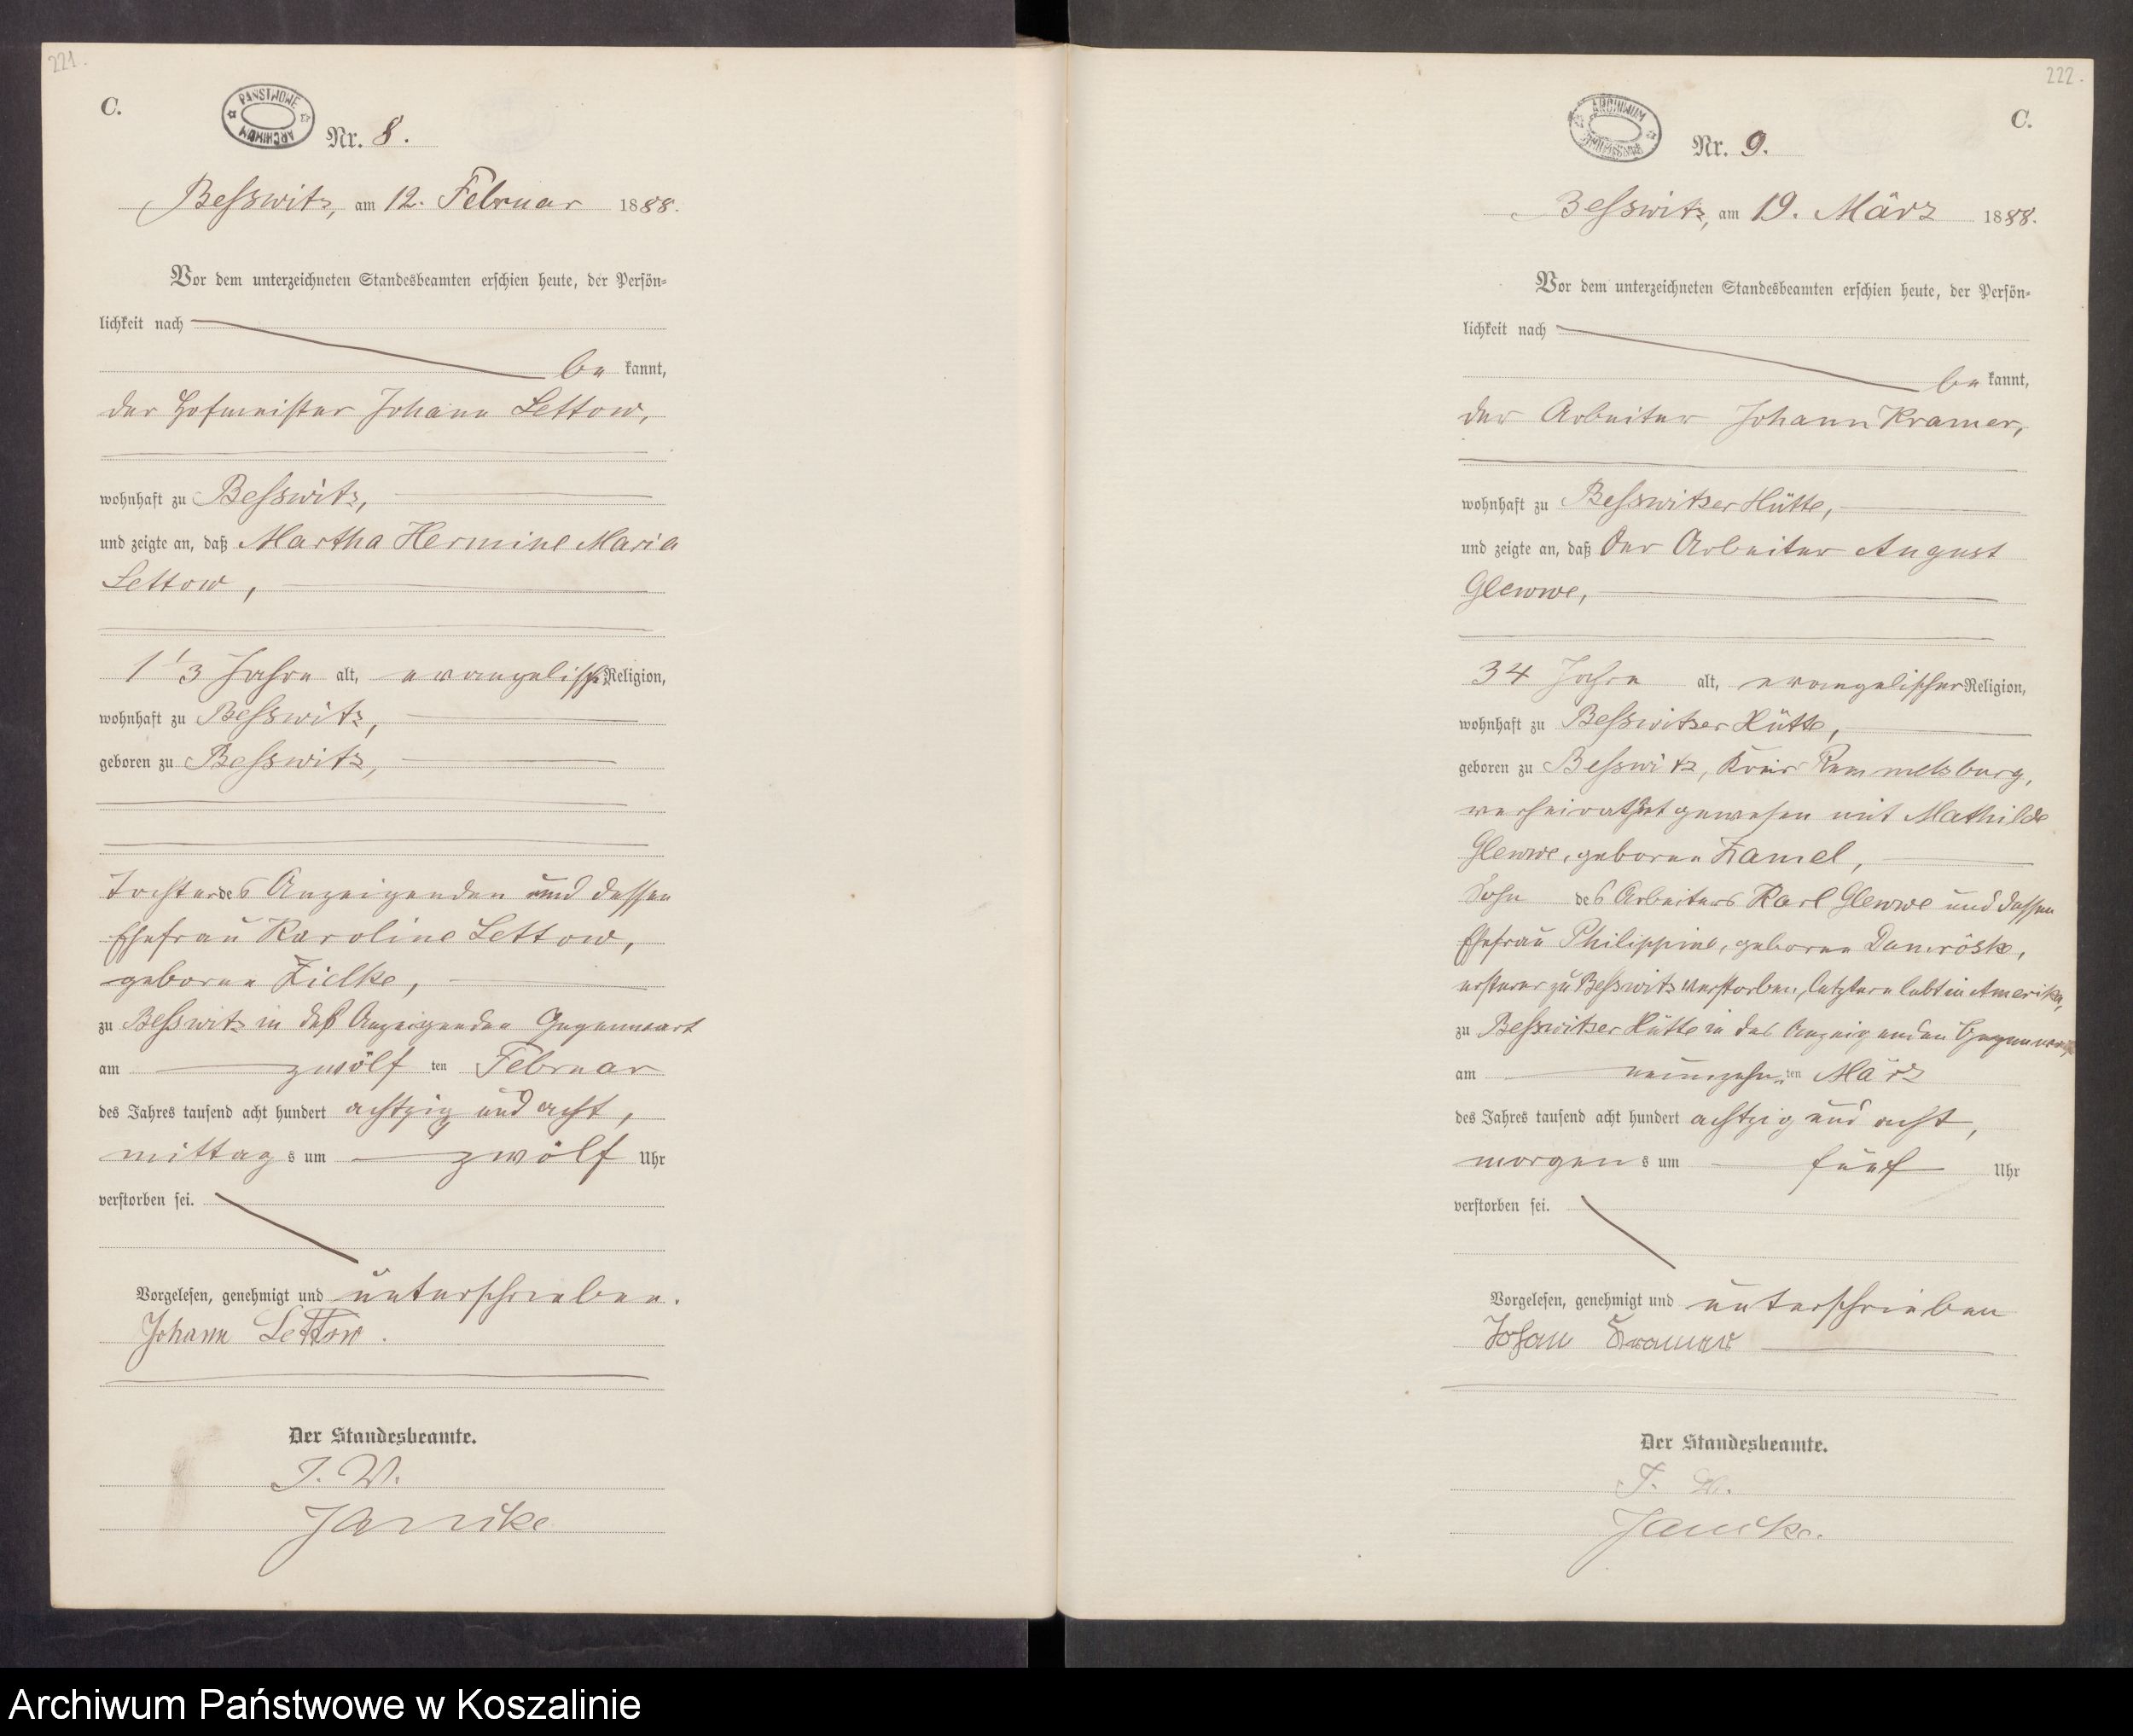 221.
C.
PAŃSTWOWE ARCHIWUM
Nr. 8.
Besswitz, am 12. Februar 1888.
Vor dem unterzeichneten Standesbeamten erschien heute, der Persön-
lichkeit nach
be kannt,
der Hofmeister Johann Lettow,
wohnhaft zu Besswitz,
und zeigte an, daß Martha Hermine Maria
Lettow,
1 1/3 Jahre alt, evangelischer Religion,
wohnhaft zu Besswitz,
geboren zu Besswitz,
Tochter des Anzeigenden und dessen
Ehefrau Karoline Lettow,
geborene Zielke,
zu Besswitz in des Anzeigenden Gegenwart
am zwölf ten Februar
des Jahres tausend acht hundert achtzig und acht,
mittag s um zwölf Uhr
verstorben sei.
Vorgelesen, genehmigt und unterschrieben.
Johann Lettow.
Der Standesbeamte.
J. V.
Janike
222.
C.
ARCHIWUM PAŃSTWOWE
Nr. 9.
Besswitz, am 19. März 1888.
Vor dem unterzeichneten Standesbeamten erschien heute, der Persön-
lichkeit nach
be kannt,
der Arbeiter Johann Kramer,
wohnhaft zu Besswitzer Hütte,
und zeigte an, daß der Arbeiter August
Glewwe,
34 Jahre alt, evangelischer Religion,
wohnhaft zu Besswitzer Hütte,
geboren zu Besswitz, Kreis Rummelsburg,
verheirathet gewesen mit Mathilde
Glewwe, geborene Kamel,
Sohn des Arbeiters Karl Glewwe und dessen
Ehefrau Philippine, geborene Damröske,
ersterer zu Besswitz verstorben, letztere lebt in Amerika,
zu Besswitzer Hütte in des Anzeigenden Gegenwart
am neunzehn ten März
des Jahres tausend acht hundert achtzig und acht,
morgen s um fünf Uhr
verstorben sei.
Vorgelesen, genehmigt und unterschrieben
Johan Kramer
Der Standesbeamte.
J. V.
Janike.
Archiwum Państwowe w Koszalinie